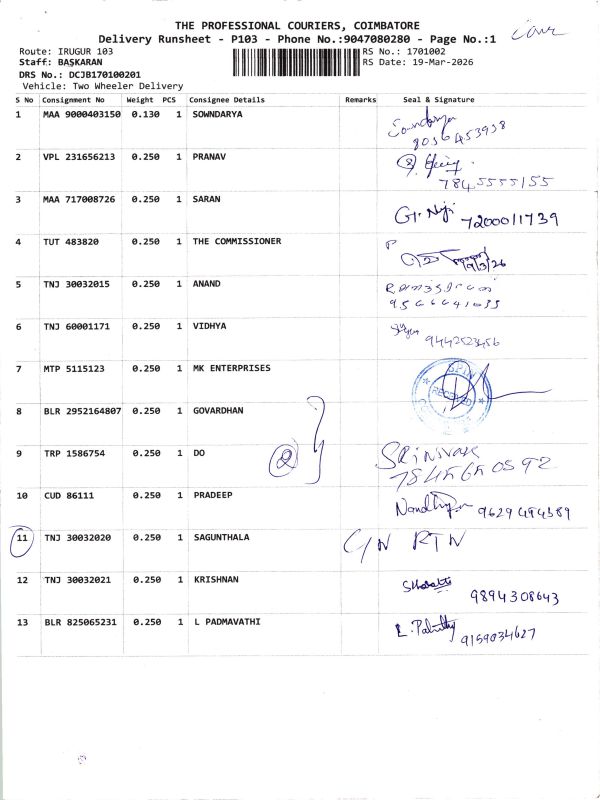 THE PROFESSIONAL COURIERS, COIMBATORE
Delivery Runsheet - P103 - Phone No.:9047080280 - Page No.:1
Route: IRUGUR 103 RS No.: 1701002
Staff: BASKARAN RS Date: 19-Mar-2026
DRS No.: DCJB170100201
Vehicle: Two Wheeler Delivery
S No Consignment No Weight PCS Consignee Details Remarks Seal & Signature
1 MAA 9000403150 0.130 1 SOWNDARYA Sowndarya
8056453938
2 VPL 231656213 0.250 1 PRANAV
7845555155
3 MAA 717008726 0.250 1 SARAN 7200011739
4 TUT 483820 0.250 1 THE COMMISSIONER
19/3/26
5 TNJ 30032015 0.250 1 ANAND
6 TNJ 60001171 0.250 1 VIDHYA
9442523456
7 MTP 5115123 0.250 1 MK ENTERPRISES
RECEIVED
8 BLR 2952164807 0.250 1 GOVARDHAN
9 TRP 1586754 0.250 1 DO 2 SRINIVAS
10 CUD 86111 0.250 1 PRADEEP Nandhya 9629494389
11 TNJ 30032020 0.250 1 SAGUNTHALA C/N RTN
12 TNJ 30032021 0.250 1 KRISHNAN
9894308643
13 BLR 825065231 0.250 1 L PADMAVATHI
9159034627